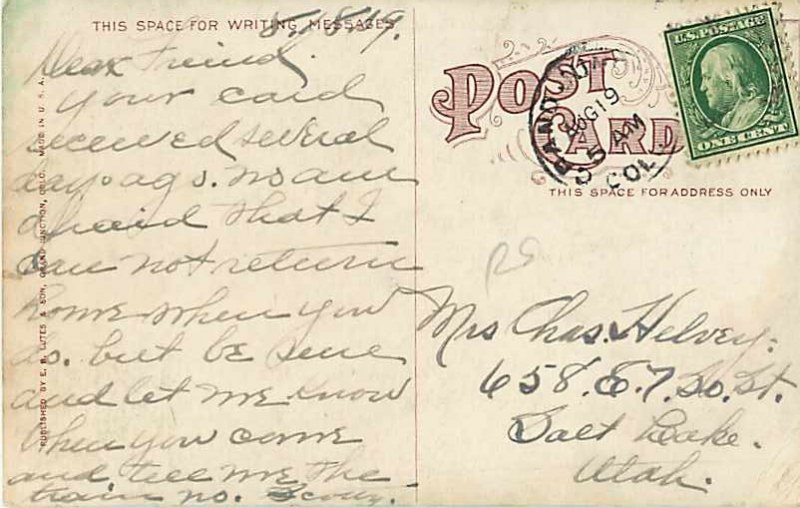 THIS SPACE FOR WRITING MESSAGES
8/18/19.
Dear Friend.
Your card
received several
days ago. no am
afraid that I
can not return
home when you
do. but be sure
and let me know
when you come
and tell me the
train no.
PUBLISHED BY E. B. LUTES & SON, GRAND JUNCTION, COLO. MADE IN U.S.A.
POST CARD
THIS SPACE FOR ADDRESS ONLY
GRAND JUNC
AUG 19
5 AM
COL
U.S. POSTAGE
ONE CENT
Mrs Chas. Helvey.
658. E. 7. So. St.
Salt Lake.
Utah.